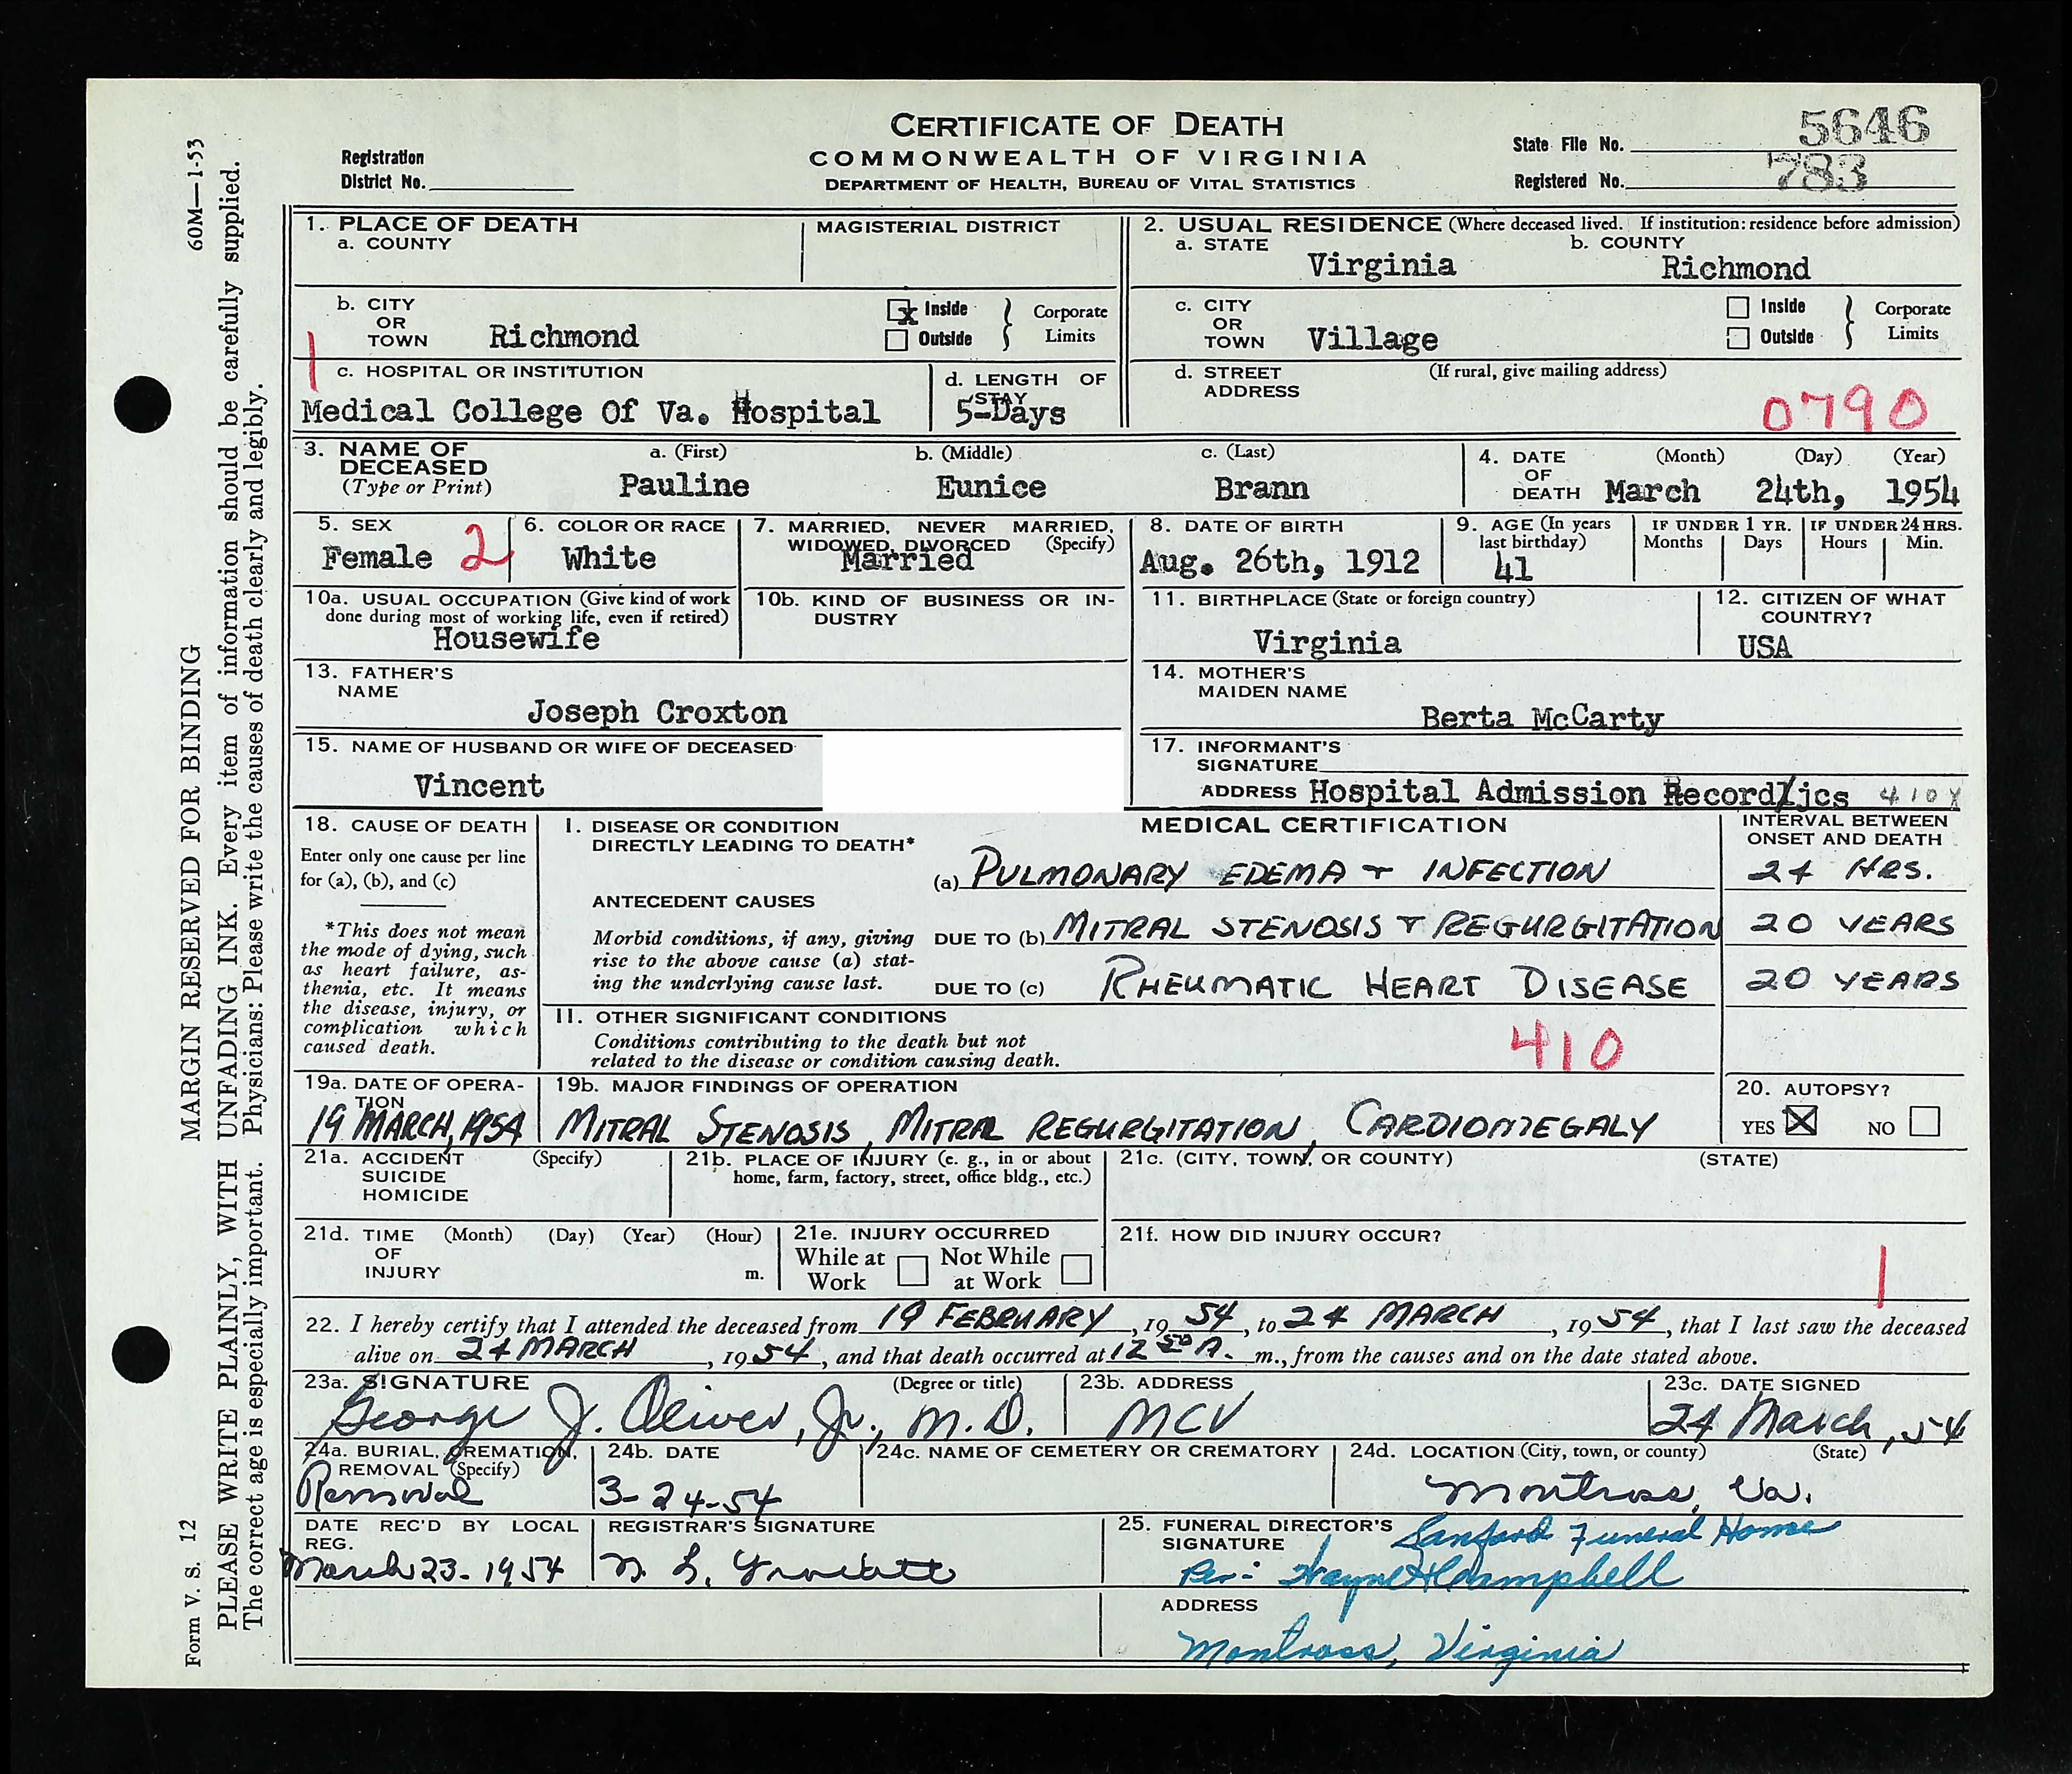 CERTIFICATE OF DEATH
COMMONWEALTH OF VIRGINIA
DEPARTMENT OF HEALTH, BUREAU OF VITAL STATISTICS
Registration District No.
State File No. 5646
Registered No. 783
60M—1-53
MARGIN RESERVED FOR BINDING
PLEASE WRITE PLAINLY, WITH UNFADING INK. Every item of information should be carefully supplied.
The correct age is especially important. Physicians: Please write the causes of death clearly and legibly.
Form V. S. 12
1. PLACE OF DEATH
a. COUNTY
MAGISTERIAL DISTRICT
2. USUAL RESIDENCE (Where deceased lived. If institution: residence before admission)
a. STATE Virginia
b. COUNTY Richmond
b. CITY OR TOWN Richmond
x Inside
Outside
Corporate Limits
c. CITY OR TOWN Village
Inside
Outside
Corporate Limits
1
c. HOSPITAL OR INSTITUTION
Medical College Of Va. Hospital
d. LENGTH OF STAY
5-Days
d. STREET ADDRESS
(If rural, give mailing address)
0790
3. NAME OF DECEASED (Type or Print)
a. (First) Pauline
b. (Middle) Eunice
c. (Last) Brann
4. DATE OF DEATH
(Month) (Day) (Year)
March 24th, 1954
5. SEX
Female 2
6. COLOR OR RACE
White
7. MARRIED, NEVER MARRIED, WIDOWED, DIVORCED (Specify)
Married
8. DATE OF BIRTH
Aug. 26th, 1912
9. AGE (In years last birthday)
41
IF UNDER 1 YR.
Months Days
IF UNDER 24 HRS.
Hours Min.
10a. USUAL OCCUPATION (Give kind of work done during most of working life, even if retired)
Housewife
10b. KIND OF BUSINESS OR INDUSTRY
11. BIRTHPLACE (State or foreign country)
Virginia
12. CITIZEN OF WHAT COUNTRY?
USA
13. FATHER'S NAME
Joseph Croxton
14. MOTHER'S MAIDEN NAME
Berta McCarty
15. NAME OF HUSBAND OR WIFE OF DECEASED
Vincent
17. INFORMANT'S SIGNATURE
ADDRESS Hospital Admission Record/jcs 410X
18. CAUSE OF DEATH
Enter only one cause per line for (a), (b), and (c)
*This does not mean the mode of dying, such as heart failure, asthenia, etc. It means the disease, injury, or complication which caused death.
MEDICAL CERTIFICATION
INTERVAL BETWEEN ONSET AND DEATH
I. DISEASE OR CONDITION DIRECTLY LEADING TO DEATH*
(a) PULMONARY EDEMA + INFECTION 24 HRS.
ANTECEDENT CAUSES
Morbid conditions, if any, giving rise to the above cause (a) stating the underlying cause last.
DUE TO (b) MITRAL STENOSIS + REGURGITATION 20 YEARS
DUE TO (c) RHEUMATIC HEART DISEASE 20 YEARS
II. OTHER SIGNIFICANT CONDITIONS
Conditions contributing to the death but not related to the disease or condition causing death.
410
19a. DATE OF OPERATION
19 MARCH, 1954
19b. MAJOR FINDINGS OF OPERATION
MITRAL STENOSIS, MITRAL REGURGITATION, CARDIOMEGALY
20. AUTOPSY?
YES X NO
21a. ACCIDENT SUICIDE HOMICIDE (Specify)
21b. PLACE OF INJURY (e. g., in or about home, farm, factory, street, office bldg., etc.)
21c. (CITY, TOWN, OR COUNTY) (STATE)
21d. TIME OF INJURY (Month) (Day) (Year) (Hour) m.
21e. INJURY OCCURRED
While at Work
Not While at Work
21f. HOW DID INJURY OCCUR?
1
22. I hereby certify that I attended the deceased from 19 FEBRUARY, 1954, to 24 MARCH, 1954, that I last saw the deceased
alive on 24 MARCH, 1954, and that death occurred at 12 50 A. m., from the causes and on the date stated above.
23a. SIGNATURE (Degree or title)
George J. Oliver, Jr., M.D.
23b. ADDRESS
MCV
23c. DATE SIGNED
24 March, 54
24a. BURIAL, CREMATION, REMOVAL (Specify)
Removal
24b. DATE
3-24-54
24c. NAME OF CEMETERY OR CREMATORY
24d. LOCATION (City, town, or county) (State)
Montross, Va.
DATE REC'D BY LOCAL REG.
March 23-1954
REGISTRAR'S SIGNATURE
25. FUNERAL DIRECTOR'S SIGNATURE
Sanford Funeral Home
Per: Wayne H Campbell
ADDRESS
Montross, Virginia